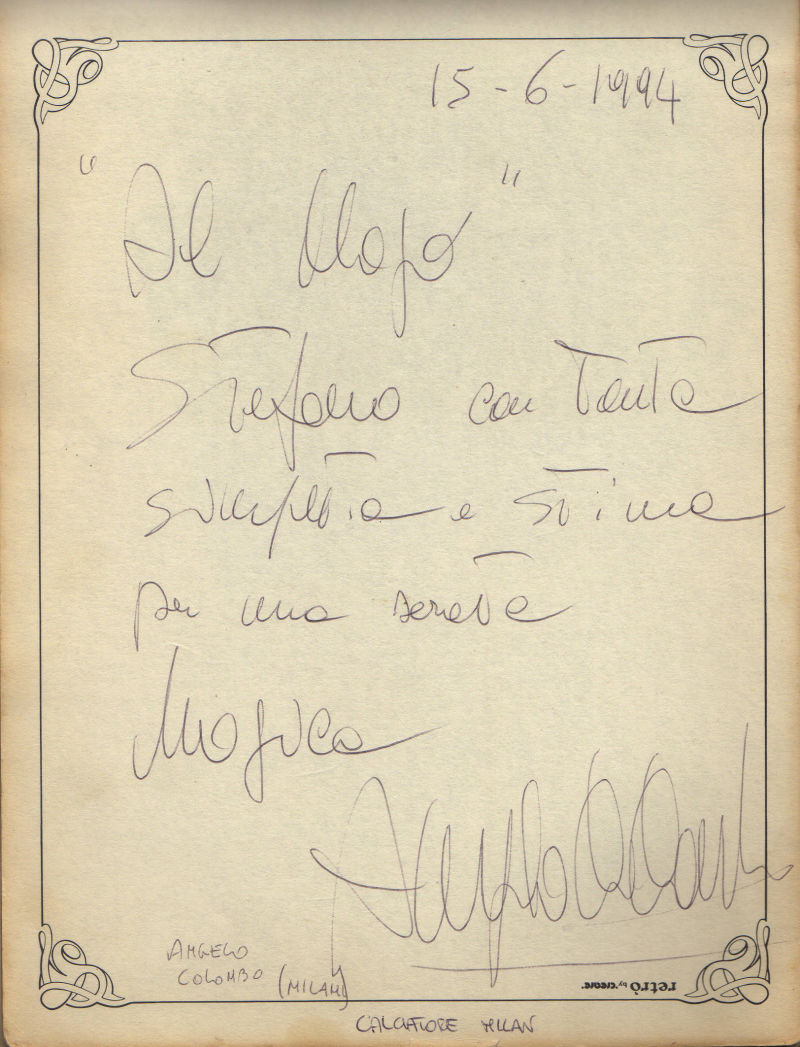 15-6-1994
"Al Mago"
Stefano con tanta
simpatia e stima
per una serata
Magica
Angelo Colombo
ANGELO
COLOMBO (MILAN)
retrò by creare.
CALCIATORE MILAN